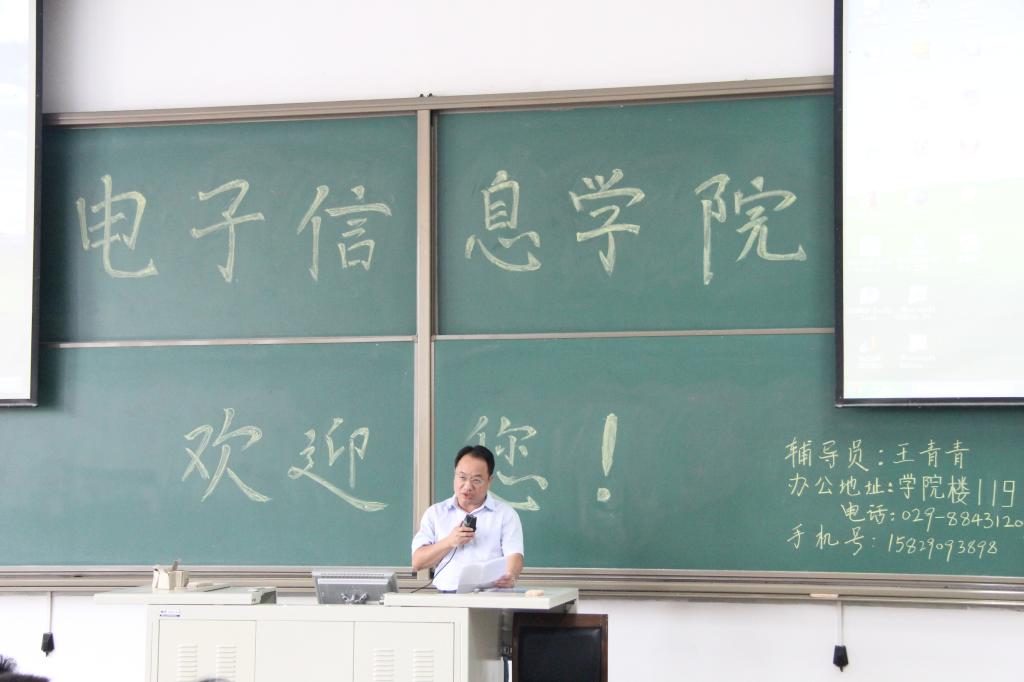 电子信息学院
欢迎您！
辅导员：王青青
办公地址：学院楼119
电话：029-8843120
手机号：15829093898